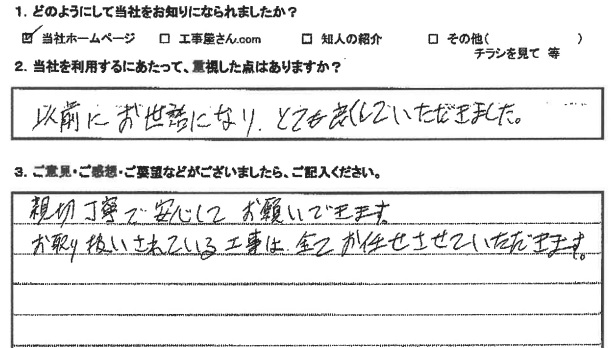 1. どのようにして当社をお知りになられましたか？
☑ 当社ホームページ □ 工事屋さん.com □ 知人の紹介 □ その他( )
チラシを見て 等
2. 当社を利用するにあたって、重視した点はありますか？
以前にお世話になり、とても良くしていただきました。
3. ご意見・ご感想・ご要望などがございましたら、ご記入ください。
親切丁寧で安心してお願いできます
お取り扱いされている工事は、全てお任せさせていただきます。